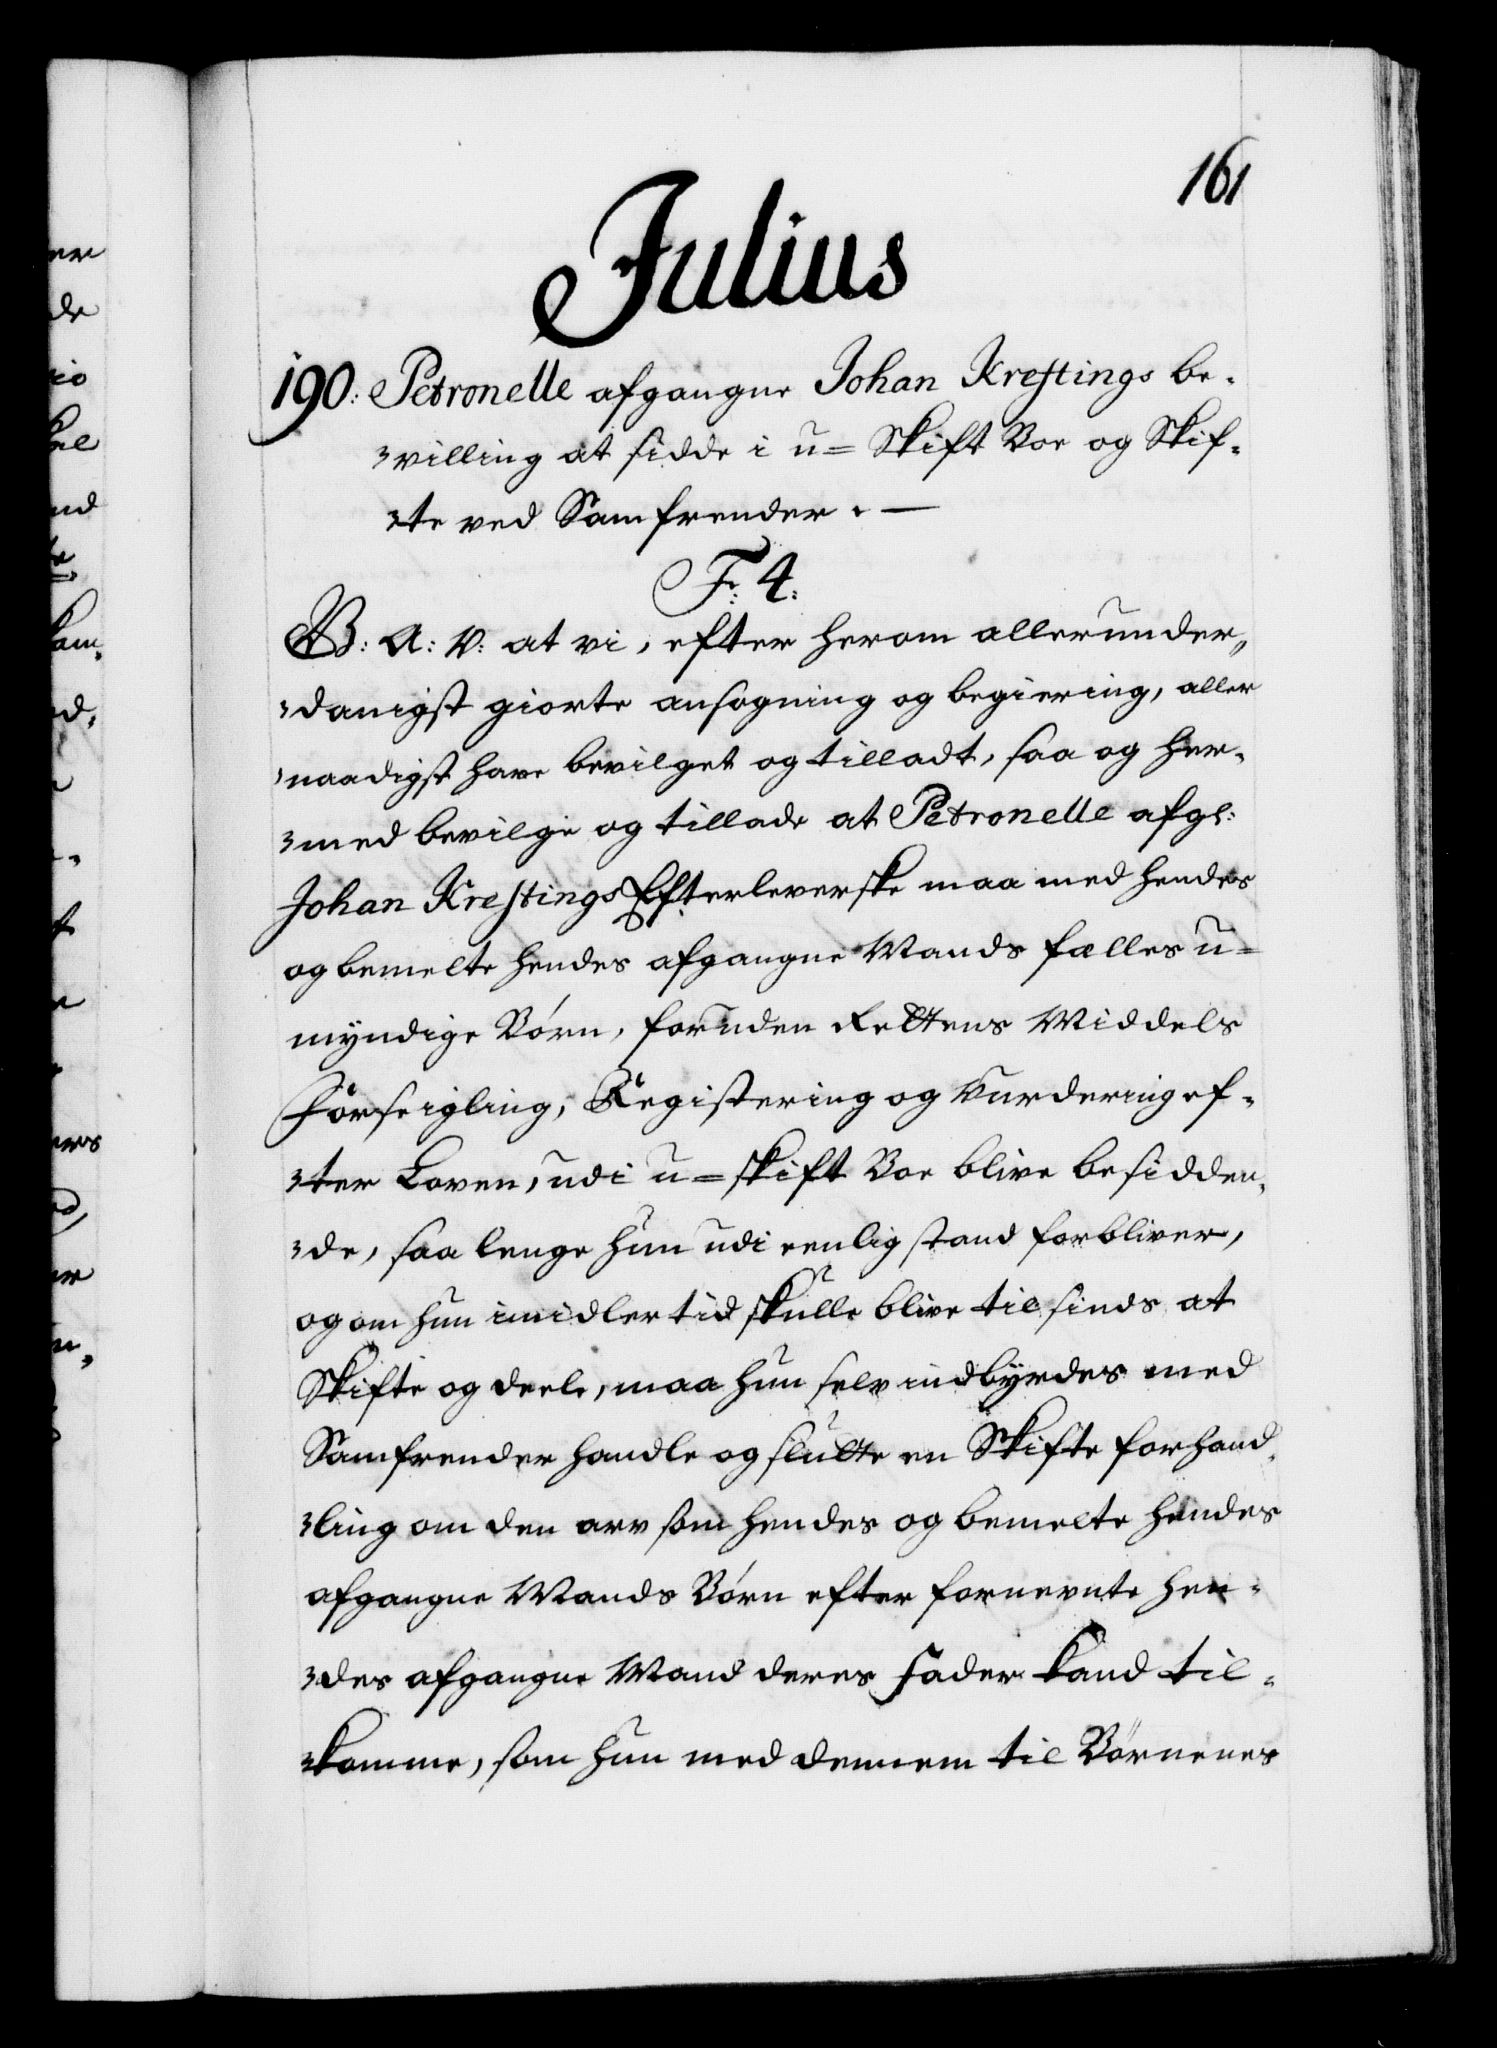 161
Julius
190: Petronelle afgangne Johan Krestings be-
villing at sidde i u= Skift Boe og Skif-
te ved Samfrender. —
F: 4:
G: A: V: at vi, efter herom allerunder-
danigst giorte ansøgning og begiering, aller
naadigst have bevilget og tilladt, saa og her-
med bevilge og tillade at Petronelle afg:
Johan Krestings Efterleverske maa med hendes
og bemelte hendes afgangne Mands fælles u=
myndige Børn, foruden Rettens Middels
Forseigling, Registering og Vurdering ef-
ter Loven, udi u=skift Boe blive besidden-
de, saa lenge hun udi eenlig stand forbliver,
og om hun imidlertid skulle blive til sinds at
Skifte og deele, maa hun selv indbyrdes med
Samfrender handle og slutte en Skifte forhand-
ling om den arv som hendes og bemelte hendes
afgangne Mands Børn efter fornevnte hen-
des afgangne Mand deres Fader kand til-
komme, som hun med dennem til Børnenes